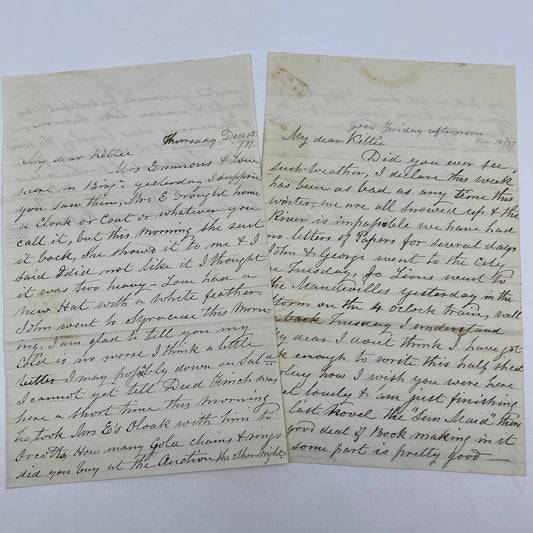 Thursday Dec 13
/77
My dear Kittie
Mrs Emmons & Lou
were in Bing. yesterday, I suppose
you saw them, Mrs E brought home
a Cloak or Coat or whatever you
call it, but this morning she sent
it back, she showed it to me & I
said I did not like it I thought
it was two heavy- Lou had a
new Hat with a White feather.
John went to Syracuse this Morn-
ing, I am glad to tell you my
Cold is no worse I think a little
better I may possibly down on Sat
I cannot yet tell Dud Finch was
here a short time this Morning
he took Mrs E's Cloak with him to
How many Gold chains & rings
did you buy at the Auction the other night
Good Friday afternoon
Mar 30/77
My dear Kittie
Did you ever see
such weather, I declare this week
has been as bad as any time this
winter, we are all snowed up & the
River is impassable we have had
letters or Papers for several days
John & George went to the City
Tuesday, Jo Lions went to
the yesterday in the
storm on the 4 oclock train, will
back Tuesday I understand
dear I dont think I have got
enough to write this half sheet
how I wish you were here
lonely & am just finishing
last Novel the "Sun Maid" there
good deal of Book making in it
some part is pretty good